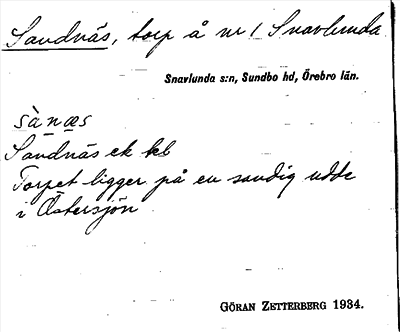 Sandnäs, torp å nr 1 Snavlunda
Snavlunda s:n, Sundbo hd, Örebro län.
sànæs
Sandnäs ek kl
Torpet ligger på en sandig udde
i Östersjön
GÖRAN ZETTERBERG 1934.